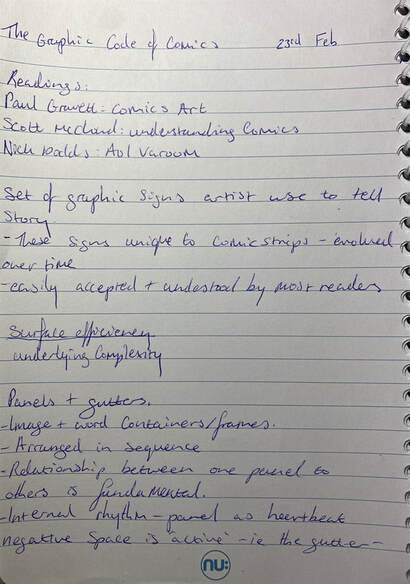 The Graphic Code of Comics 23rd Feb
Readings:
Paul Gravett: Comics Art
Scott McCloud: understanding Comics
Nick Dodds: Aol Varoom
Set of graphic signs artist use to tell
Story
- These signs unique to comic strips - evolved
over time
- easily accepted + understood by most readers
Surface efficiency
underlying Complexity
Panels + gutters.
- Image + word Containers/frames.
- Arranged in sequence
- Relationship between one panel to
others is fundamental.
- Internal rhythm - panel as heartbeat
negative space is "active" - ie the gutter -
nu: